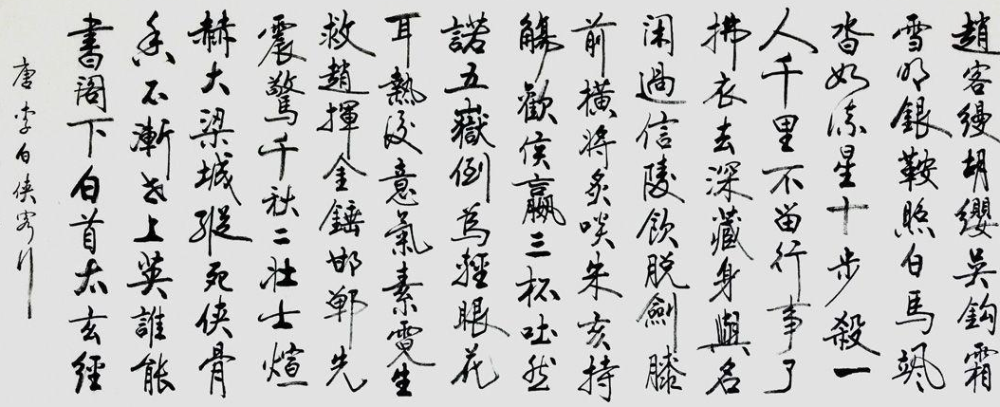 趙客縵胡纓吳鈎霜
雪明銀鞍照白馬颯
沓如流星十步殺一
人千里不留行事了
拂衣去深藏身與名
闲過信陵飲脱劍膝
前橫將炙啖朱亥持
觴歡侯嬴三杯吐然
諾五嶽倒為輕眼花
耳熱後意氣素霓生
救趙揮金錘邯鄲先
震驚千秋二壮士煊
赫大梁城縱死侠骨
香不漸世上英誰能
書閣下白首太玄經
唐李白侠客行